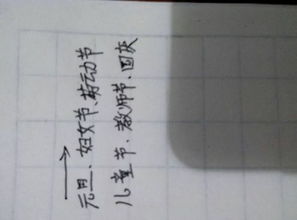 元旦、妇女节、劳动节
儿童节、教师节、国庆